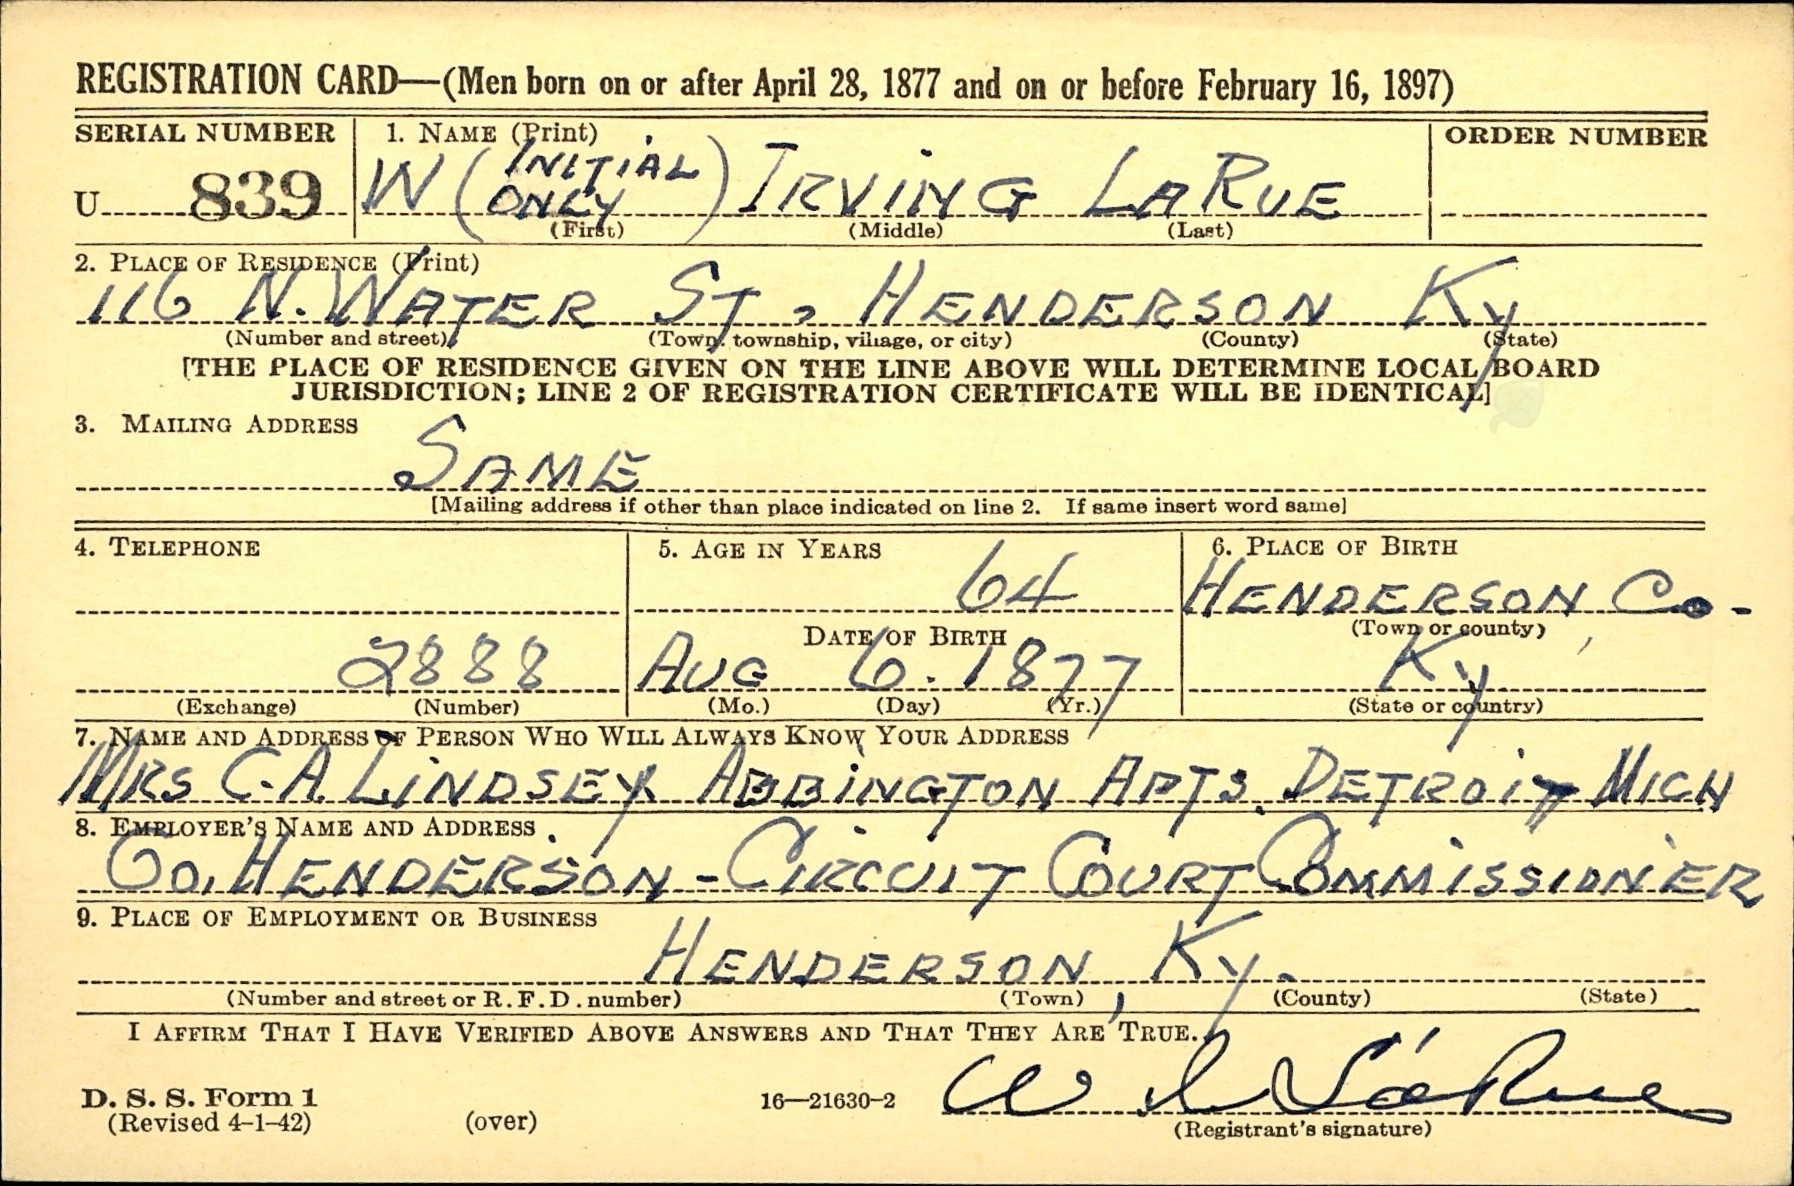 REGISTRATION CARD—(Men born on or after April 28, 1877 and on or before February 16, 1897)
SERIAL NUMBER 1. NAME (Print) ORDER NUMBER
U 839 W (INITIAL ONLY) IRVING LARUE
(First) (Middle) (Last)
2. PLACE OF RESIDENCE (Print)
116 N. WATER ST, HENDERSON KY
(Number and street) (Town, township, village, or city) (County) (State)
[THE PLACE OF RESIDENCE GIVEN ON THE LINE ABOVE WILL DETERMINE LOCAL BOARD
JURISDICTION; LINE 2 OF REGISTRATION CERTIFICATE WILL BE IDENTICAL]
3. MAILING ADDRESS
SAME
[Mailing address if other than place indicated on line 2. If same insert word same]
4. TELEPHONE 5. AGE IN YEARS 6. PLACE OF BIRTH
64 HENDERSON CO.
DATE OF BIRTH (Town or county)
2888 AUG 6. 1877 KY
(Exchange) (Number) (Mo.) (Day) (Yr.) (State or country)
7. NAME AND ADDRESS OF PERSON WHO WILL ALWAYS KNOW YOUR ADDRESS
MRS C.A. LINDSEY ABBINGTON APTS. DETROIT MICH
8. EMPLOYER'S NAME AND ADDRESS
CO. HENDERSON - CIRCUIT COURT COMMISSIONIER
9. PLACE OF EMPLOYMENT OR BUSINESS
HENDERSON, KY.
(Number and street or R.F.D. number) (Town) (County) (State)
I AFFIRM THAT I HAVE VERIFIED ABOVE ANSWERS AND THAT THEY ARE TRUE.
W I LaRue
D. S. S. Form 1
(Revised 4-1-42) (over) 16—21630-2 (Registrant's signature)